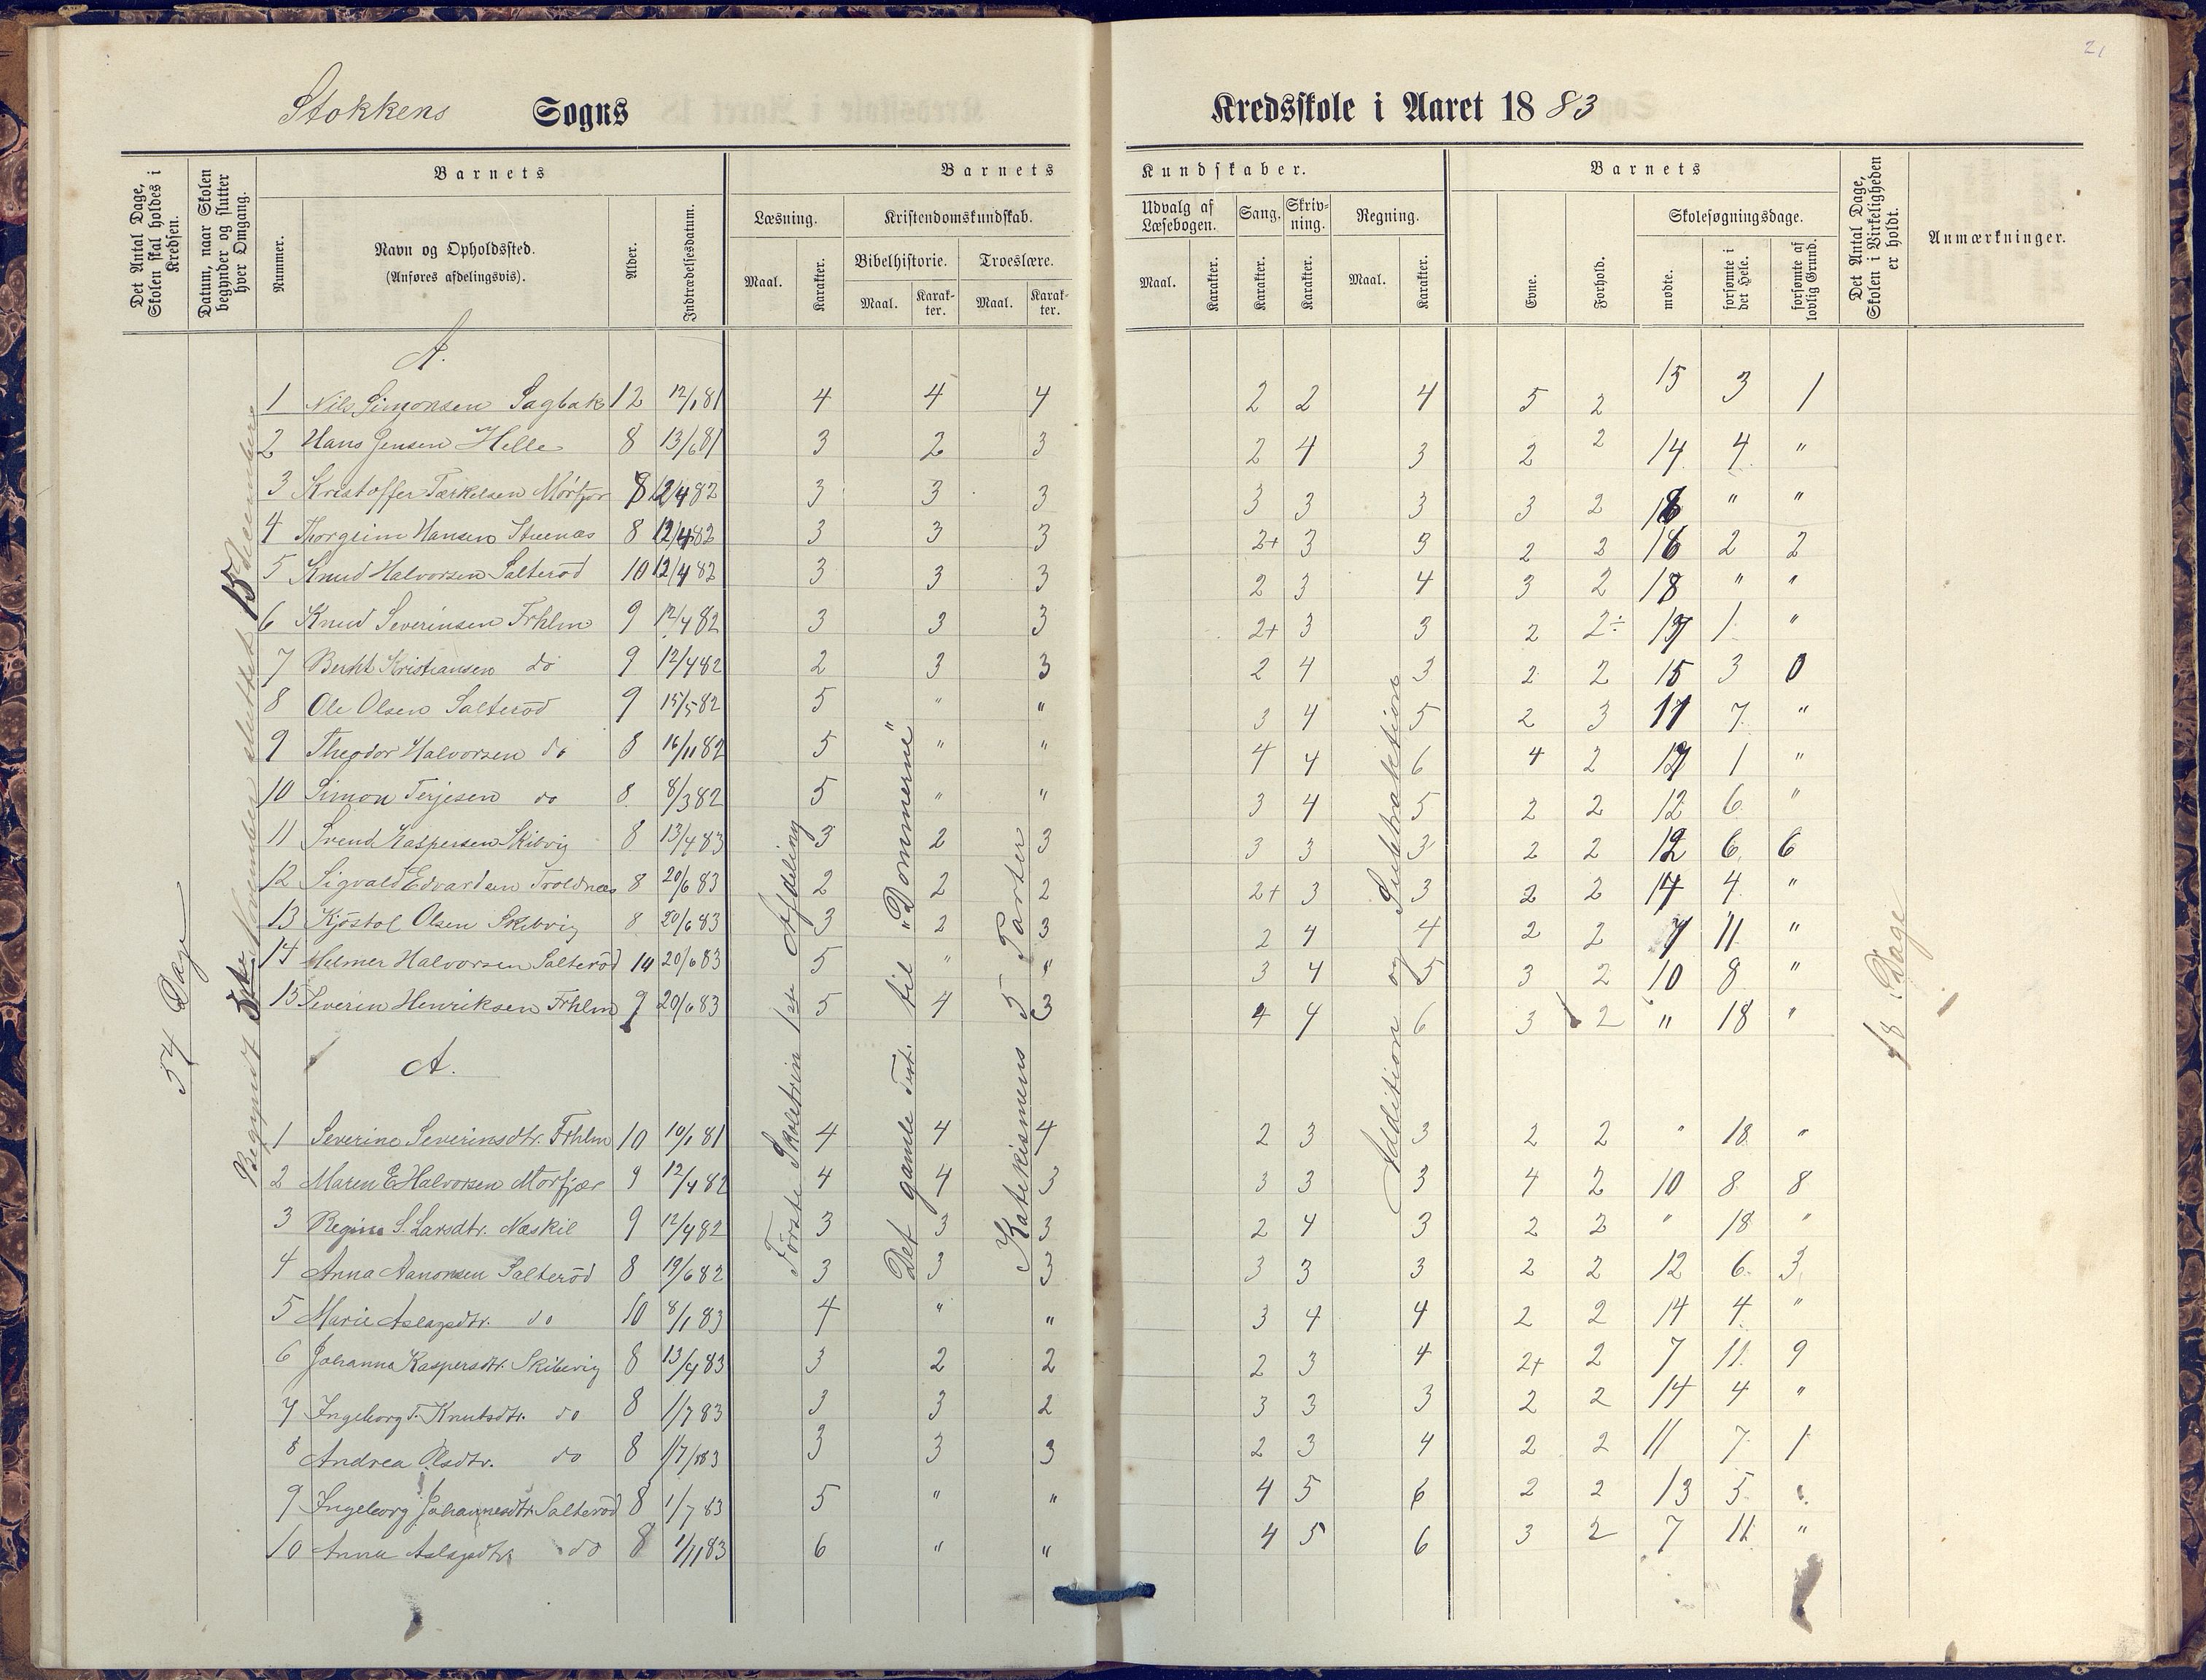 21
Stokkens Sogns Kredsskole i Aaret 1883
Det Antal Dage, Skolen skal holdes i Kredsen.
Datum, naar Skolen begynder og slutter hver Omgang.
Barnets
Nummer.
Navn og Opholdssted.
(Anføres afdelingsvis).
Alder.
Indtrædelsesdatum.
Barnets Kundskaber.
Læsning.
Kristendomskundskab.
Udvalg af Læsebogen.
Sang.
Skriv-ning.
Regning.
Bibelhistorie.
Troeslære.
Maal. Karakter. Maal. Karak-ter. Maal. Karak-ter. Maal. Karakter. Karakter. Karakter. Maal. Karakter.
Barnets
Evne.
Forhold.
Skolesøgningsdage.
mødte.
forsømte i det Hele.
forsømte af lovlig Grund.
Det Antal Dage, Skolen i Virkeligheden er holdt.
Anmærkninger.
54 Dage
Begyndt November sluttet 15 December
Første Skoletrin 1ste Afdeling
Det gamle Test. til "Dommerne"
Katekismens 5 Parter
Addition og Subtraktion
18 Dage
A.
1 Nils Simonsen Sagbak 12 12/1 81 4 4 4 2 2 4 5 2 15 3 1
2 Hans Jensen Helle 8 13/6 81 3 2 3 2 4 3 2 2 14 4 "
3 Kristoffer Terkelsen Mørfjær 8 12/4 82 3 3 3 3 3 3 3 2 18 " "
4 Thorgrim Hansen Stuenæs 8 12/4 82 3 3 3 2+ 3 3 2 2 16 2 2
5 Knud Halvorsen Salterød 10 12/4 82 3 3 3 2 3 4 3 2 18 " "
6 Knud Severinsen Frhlm 9 12/4 82 3 3 3 2+ 3 3 2 2÷ 17 1 "
7 Berthl Kristiansen do 9 12/4 82 2 3 3 2 4 3 2 2 15 3 0
8 Ole Olsen Salterød 9 15/5 82 5 " " 3 4 5 2 3 11 7 "
9 Theodor Halvorsen do 8 16/11 82 5 " " 4 4 6 4 2 17 1 "
10 Simon Terjesen do 8 8/3 82 5 " " 3 4 5 2 2 12 6 "
11 Svend Kaspersen Skibvig 8 13/4 83 3 2 3 3 3 3 2 2 12 6 6
12 Sigvald Edvardsen Troldnæs 8 20/6 83 2 2 2 2+ 3 3 2 2 14 4 "
13 Kjøstol Olsen Skibvig 8 20/6 83 3 2 3 2 4 4 2 2 7 11 "
14 Helmer Halvorsen Salterød 14 20/6 83 5 " " 3 4 5 3 2 10 8 "
15 Severin Henriksen Frhlm 9 20/6 83 5 4 3 4 4 6 3 2 " 18 "
A.
1 Severine Severinsdtr. Frhlm 10 10/1 81 4 4 4 2 3 3 2 2 " 18 "
2 Maren E Halvorsen Mørfjær 9 12/4 82 4 4 3 3 3 3 4 2 10 8 8
3 Regine S. Larsdtr. Næskil 9 12/4 82 3 3 3 2 4 3 2 2 " 18 "
4 Anna Aanonsen Salterød 8 19/6 82 3 3 3 3 3 3 2 2 12 6 3
5 Marie Aslagsdtr. do 10 8/1 83 4 " " 3 4 4 2 2 14 4 "
6 Johanna Kaspersdtr. Skibvig 8 13/4 83 3 2 2 2 3 4 2+ 2 7 11 9
7 Ingeborg T. Knutsdtr. do 8 1/7 83 3 3 2 3 3 3 2 2 14 4 "
8 Andrea Olsdtr. do 8 1/7 83 3 3 3 2 3 4 2 2 11 7 1
9 Ingeborg Johannesdtr. Salterød 8 1/7 83 5 " " 4 5 6 2 2 13 5 "
10 Anna Aslagsdtr. do 8 1/11 83 6 " " 4 5 6 3 2 7 11 "